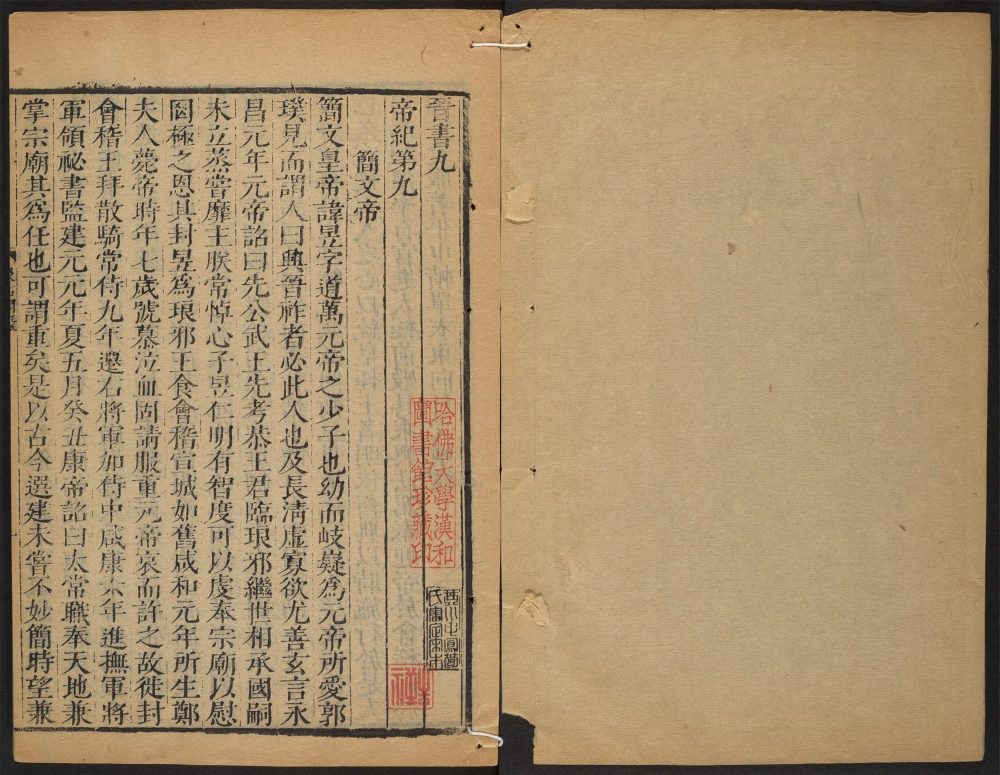 晉書九
帝紀第九
簡文帝
簡文皇帝諱昱字道萬元帝之少子也幼而岐嶷爲元帝所愛郭
璞見而謂人曰興晉祚者必此人也及長清虛寡欲尤善玄言永
昌元年元帝詔曰先公武王先考恭王君臨琅邪繼世相承國嗣
未立蒸嘗靡主朕常悼心子昱仁明有智度可以虔奉宗廟以慰
罔極之恩其封昱爲琅邪王食會稽宣城如舊咸和元年所生鄭
夫人薨帝時年七歲號慕泣血固請服重元帝哀而許之故徙封
會稽王拜散騎常侍九年遷右將軍加侍中咸康六年進撫軍將
軍領祕書監建元元年夏五月癸丑康帝詔曰太常職奉天地兼
掌宗廟其爲任也可謂重矣是以古今選建未嘗不妙簡時望兼
哈佛大學漢和
圖書館珍藏印